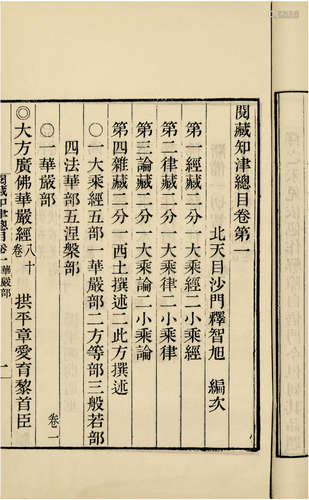 閱藏知津總目卷第一
北天目沙門釋智旭 編次
第一經藏二分一大乘經二小乘經
第二律藏二分一大乘律二小乘律
第三論藏二分一大乘論二小乘論
第四雜藏二分一西土撰述二此方撰述
○大乘經五部一華嚴部二方等部三般若部
四法華部五涅槃部
○一華嚴部 卷一
◎大方廣佛華嚴經八十卷 拱平章愛育黎首臣
閱藏知津總目卷一 華嚴部 一